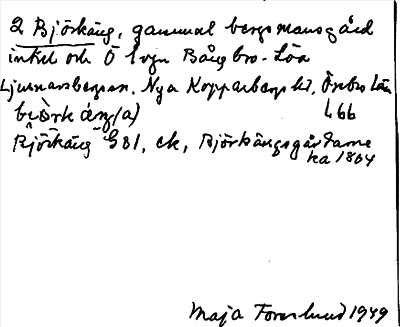 2 Björkäng, gammal bergsmansgård
intill och Ö lvgn Bångbro - Löa
Ljusnarsbergssn. Nya Kopparbergs hd. Örebro län
biòrk áŋ(a) L66
Björkäng GSl, ek, Björkängsgårdarne
ka 1864
Maja Forslund 1949